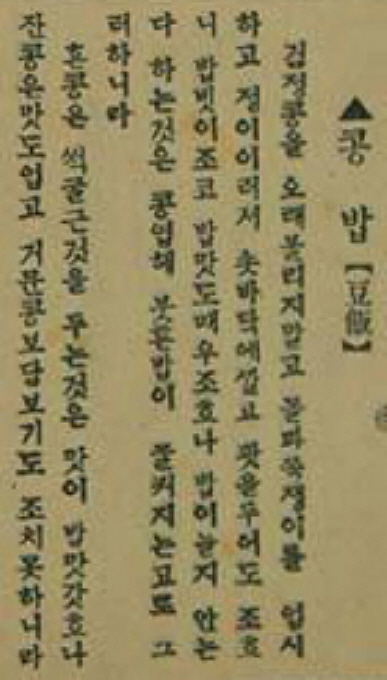 ▲콩 밥【豆飯】
검정콩을 오래불리지말고 물과쭉정이를 업시
하고 정이이러서 솟바닥에깔고 팟을두어도 조흐
니 밥빗이조코 밥맛도매우조흐나 밥이늘지 안는
다 하는것은 콩업헤 붓흔밥이 풀커지는고로 그
러하니라
흔콩은 썩굴근것을 두는것은 맛이 밥맛갓흐나
잔콩은맛도업고 거문콩보담보기도 조치못하니라